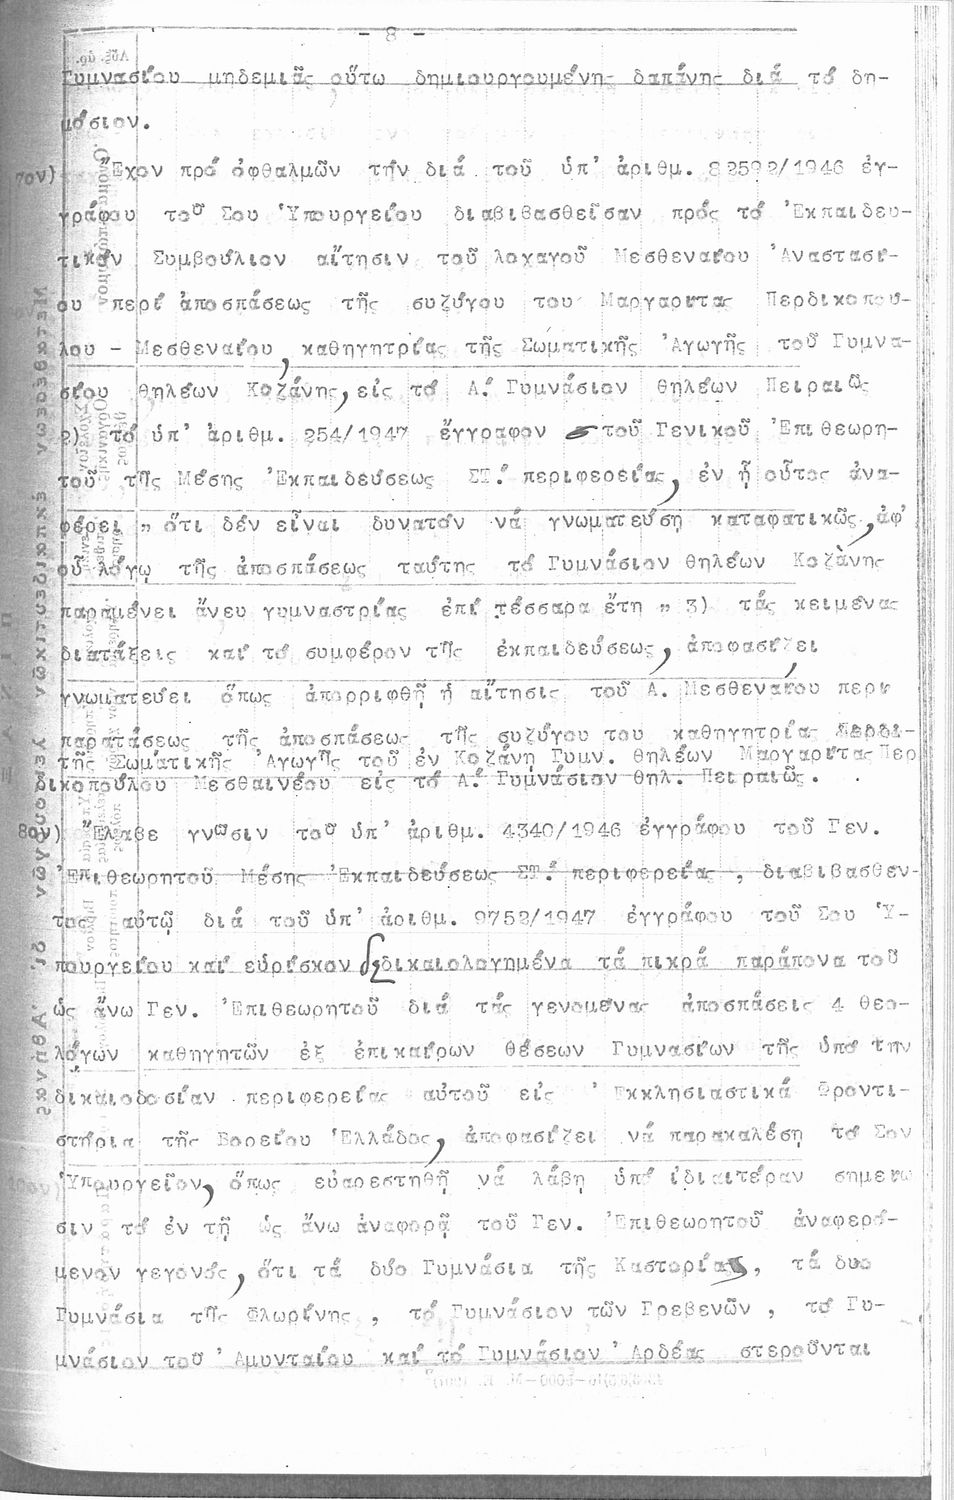 - 8 -
Γυμνασίου μηδεμιᾶς οὕτω δημιουργουμένης δαπάνης διά τό δη-
μόσιον.
7ον) Ἔχον πρό ὀφθαλμῶν τήν διά τοῦ ὑπ' ἀριθμ. 82592/1946 ἐγ-
γράφου τοῦ Σου Ὑπουργείου διαβιβασθεῖσαν πρός τό Ἐκπαιδευ-
τικόν Συμβούλιον αἴτησιν τοῦ λοχαγοῦ Μεσθεναίου Ἀναστασί-
ου περί ἀποσπάσεως τῆς συζύγου του Μαργαρίτας Περδικοπού-
λου - Μεσθεναίου, καθηγητρίας τῆς Σωματικῆς Ἀγωγῆς τοῦ Γυμνα-
σίου θηλέων Κοζάνης, εἰς τό Α΄. Γυμνάσιον θηλέων Πειραιῶς
2) τό ὑπ' ἀριθμ. 254/1947 ἔγγραφον τοῦ Γενικοῦ Ἐπιθεωρη-
τοῦ τῆς Μέσης Ἐκπαιδεύσεως ΣΤ΄. περιφερείας, ἐν ᾗ οὗτος ἀνα-
φέρει " ὅτι δέν εἶναι δυνατόν νά γνωματεύσῃ καταφατικῶς, ἀφ'
οὗ λόγῳ τῆς ἀποσπάσεως ταύτης τό Γυμνάσιον θηλέων Κοζὰνης
παραμένει ἄνευ γυμναστρίας ἐπί τέσσαρα ἔτη " 3) τάς κειμένας
διατάξεις καί τό συμφέρον τῆς ἐκπαιδεύσεως, ἀποφασίζει
γνωματεύει ὅπως ἀπορριφθῇ ἡ αἴτησις τοῦ Α. Μεσθεναίου περί
παρατάσεως τῆς ἀποσπάσεως τῆς συζύγου του καθηγητρίας
τῆς Σωματικῆς Ἀγωγῆς τοῦ ἐν Κοζάνῃ Γυμν. θηλέων Μαργαρίτας Περ
δικοπούλου Μεσθαινέου εἰς τό Α΄. Γυμνάσιον θηλ. Πειραιῶς.
8ον) Ἔλαβε γνῶσιν τοῦ ὑπ' ἀριθμ. 4340/1946 ἐγγράφου τοῦ Γεν.
Ἐπιθεωρητοῦ Μέσης Ἐκπαιδεύσεως ΣΤ΄. περιφερείας , διαβιβασθέν-
τος αὐτῷ διά τοῦ ὑπ' ἀριθμ. 9752/1947 ἐγγράφου τοῦ Σου Ὑ-
πουργείου καί εὑρίσκον δεδικαιολογημένα τά πικρά παράπονα τοῦ
ὡς ἄνω Γεν. Ἐπιθεωρητοῦ διά τάς γενομένας ἀποσπάσεις 4 θεο-
λόγων καθηγητῶν ἐξ ἐπικαίρων θέσεων Γυμνασίων τῆς ὑπό τήν
δικαιοδοσίαν περιφερείας αὐτοῦ εἰς Ἐκκλησιαστικά Φροντι-
στήρια τῆς Βορείου Ἑλλάδος, ἀποφασίζει νά παρακαλέσῃ τό Σον
Ὑπουργεῖον, ὅπως εὐαρεστηθῇ νά λάβῃ ὑπό ἰδιαιτέραν σημείω
σιν τό ἐν τῇ ὡς ἄνω ἀναφορᾷ τοῦ Γεν. Ἐπιθεωρητοῦ ἀναφερό-
μενον γεγονός, ὅτι τά δύο Γυμνάσια τῆς Καστορίας, τά δυο
Γυμνάσια τῆς Φλωρίνης , τό Γυμνάσιον τῶν Γρεβενῶν , τό Γυ-
μνάσιον τοῦ Ἀμυνταίου καί τό Γυμνάσιον Ἀρδέας στεροῦνται